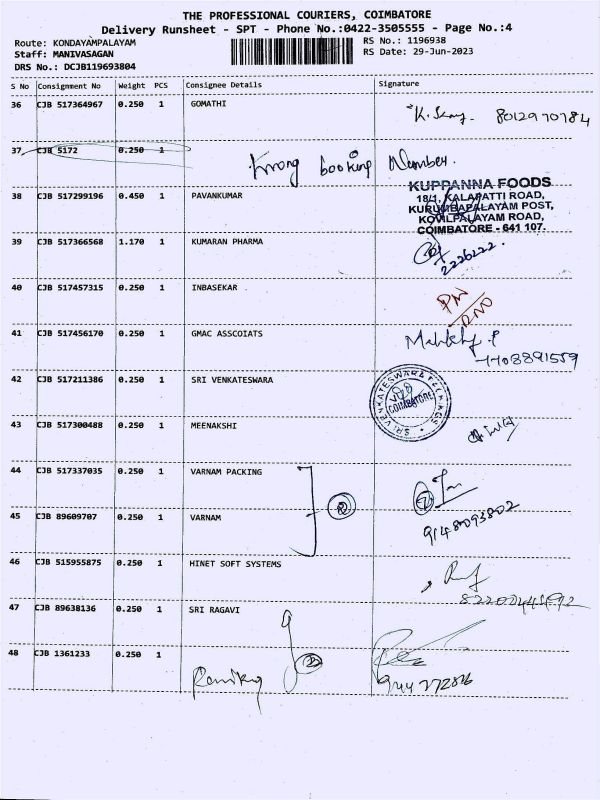 THE PROFESSIONAL COURIERS, COIMBATORE
Delivery Runsheet - SPT - Phone No.:0422-3505555 - Page No.:4
Route: KONDAYAMPALAYAM
Staff: MANIVASAGAN
DRS No.: DCJB119693804
RS No.: 1196938
RS Date: 29-Jun-2023
S No Consignment No Weight PCS Consignee Details Signature
36 CJB 517364967 0.250 1 GOMATHI 8012970784
37 CJB 5172 0.250 1 Wrong booking Number.
38 CJB 517299196 0.450 1 PAVANKUMAR
KUPPANNA FOODS
18/1, KALAPATTI ROAD,
KURUMBAPALAYAM POST,
KOVILPALAYAM ROAD,
COIMBATORE - 641 107.
39 CJB 517366568 1.170 1 KUMARAN PHARMA 2226222.
40 CJB 517457315 0.250 1 INBASEKAR
41 CJB 517456170 0.250 1 GMAC ASSCOIATS
42 CJB 517211386 0.250 1 SRI VENKATESWARA
SRI VENKATESWARA PACKAGES
COIMBATORE
43 CJB 517300488 0.250 1 MEENAKSHI
44 CJB 517337035 0.250 1 VARNAM PACKING
45 CJB 89609707 0.250 1 VARNAM 9148093802
46 CJB 515955875 0.250 1 HINET SOFT SYSTEMS
47 CJB 89638136 0.250 1 SRI RAGAVI
48 CJB 1361233 0.250 1